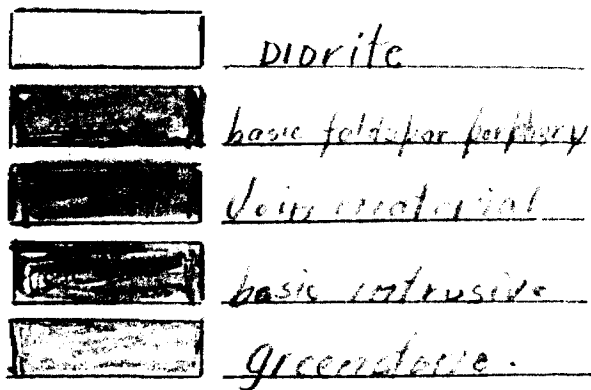 Diorite
basic feldspar porphory
Vein material
basic intrusive
greenstone.